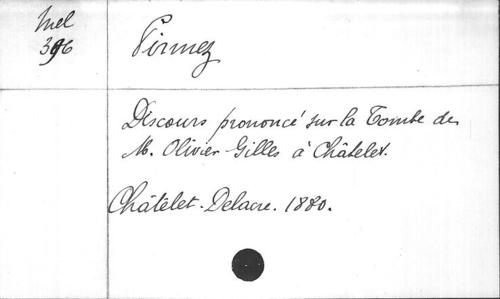 Mel
396
Pirmez
Discours prononcé sur la Tombe de
M. Olivier-Gilles à Châtelet.
Châtelet-Delacre. 1880.